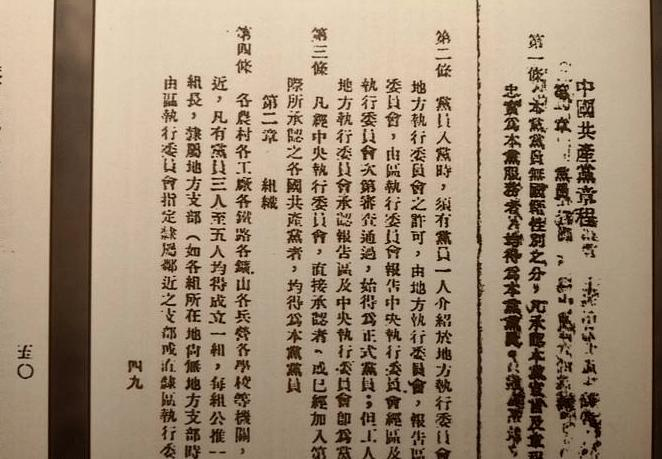 中國共產黨章程
第一章 黨員
第一條 本黨黨員無國籍性別之分，凡承認本黨宣言及章程
忠實為本黨服務者，均得為本黨黨員
第二條 黨員入黨時，須有黨員一人介紹於地方執行委員會
地方執行委員會之許可，由地方執行委員會，報告區
委員會，由區執行委員會報告中央執行委員會經區及
執行委員會次第審查通過，始得為正式黨員；但工人
地方執行委員會承認報告區及中央執行委員會卽為黨
第三條 凡經中央執行委員會，直接承認者，或已經加入第
際所承認之各國共產黨者，均得為本黨黨員
第二章 組織
第四條 各農村各工廠各鐵路各鑛山各兵營各學校等機關，
近，凡有黨員三人至五人均得成立一組，每組公推一
組長，隸屬地方支部（如各組所在地尚無地方支部時
由區執行委員會指定隸屬鄰近之支部或直隸區執行委
四九
五〇